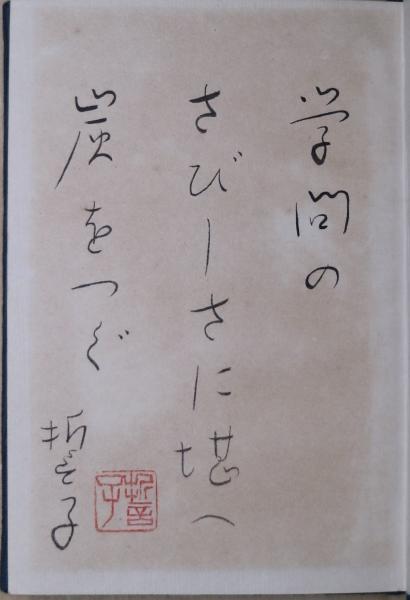 学問の
さびしさに堪へ
炭をつぐ
誓子
誓子